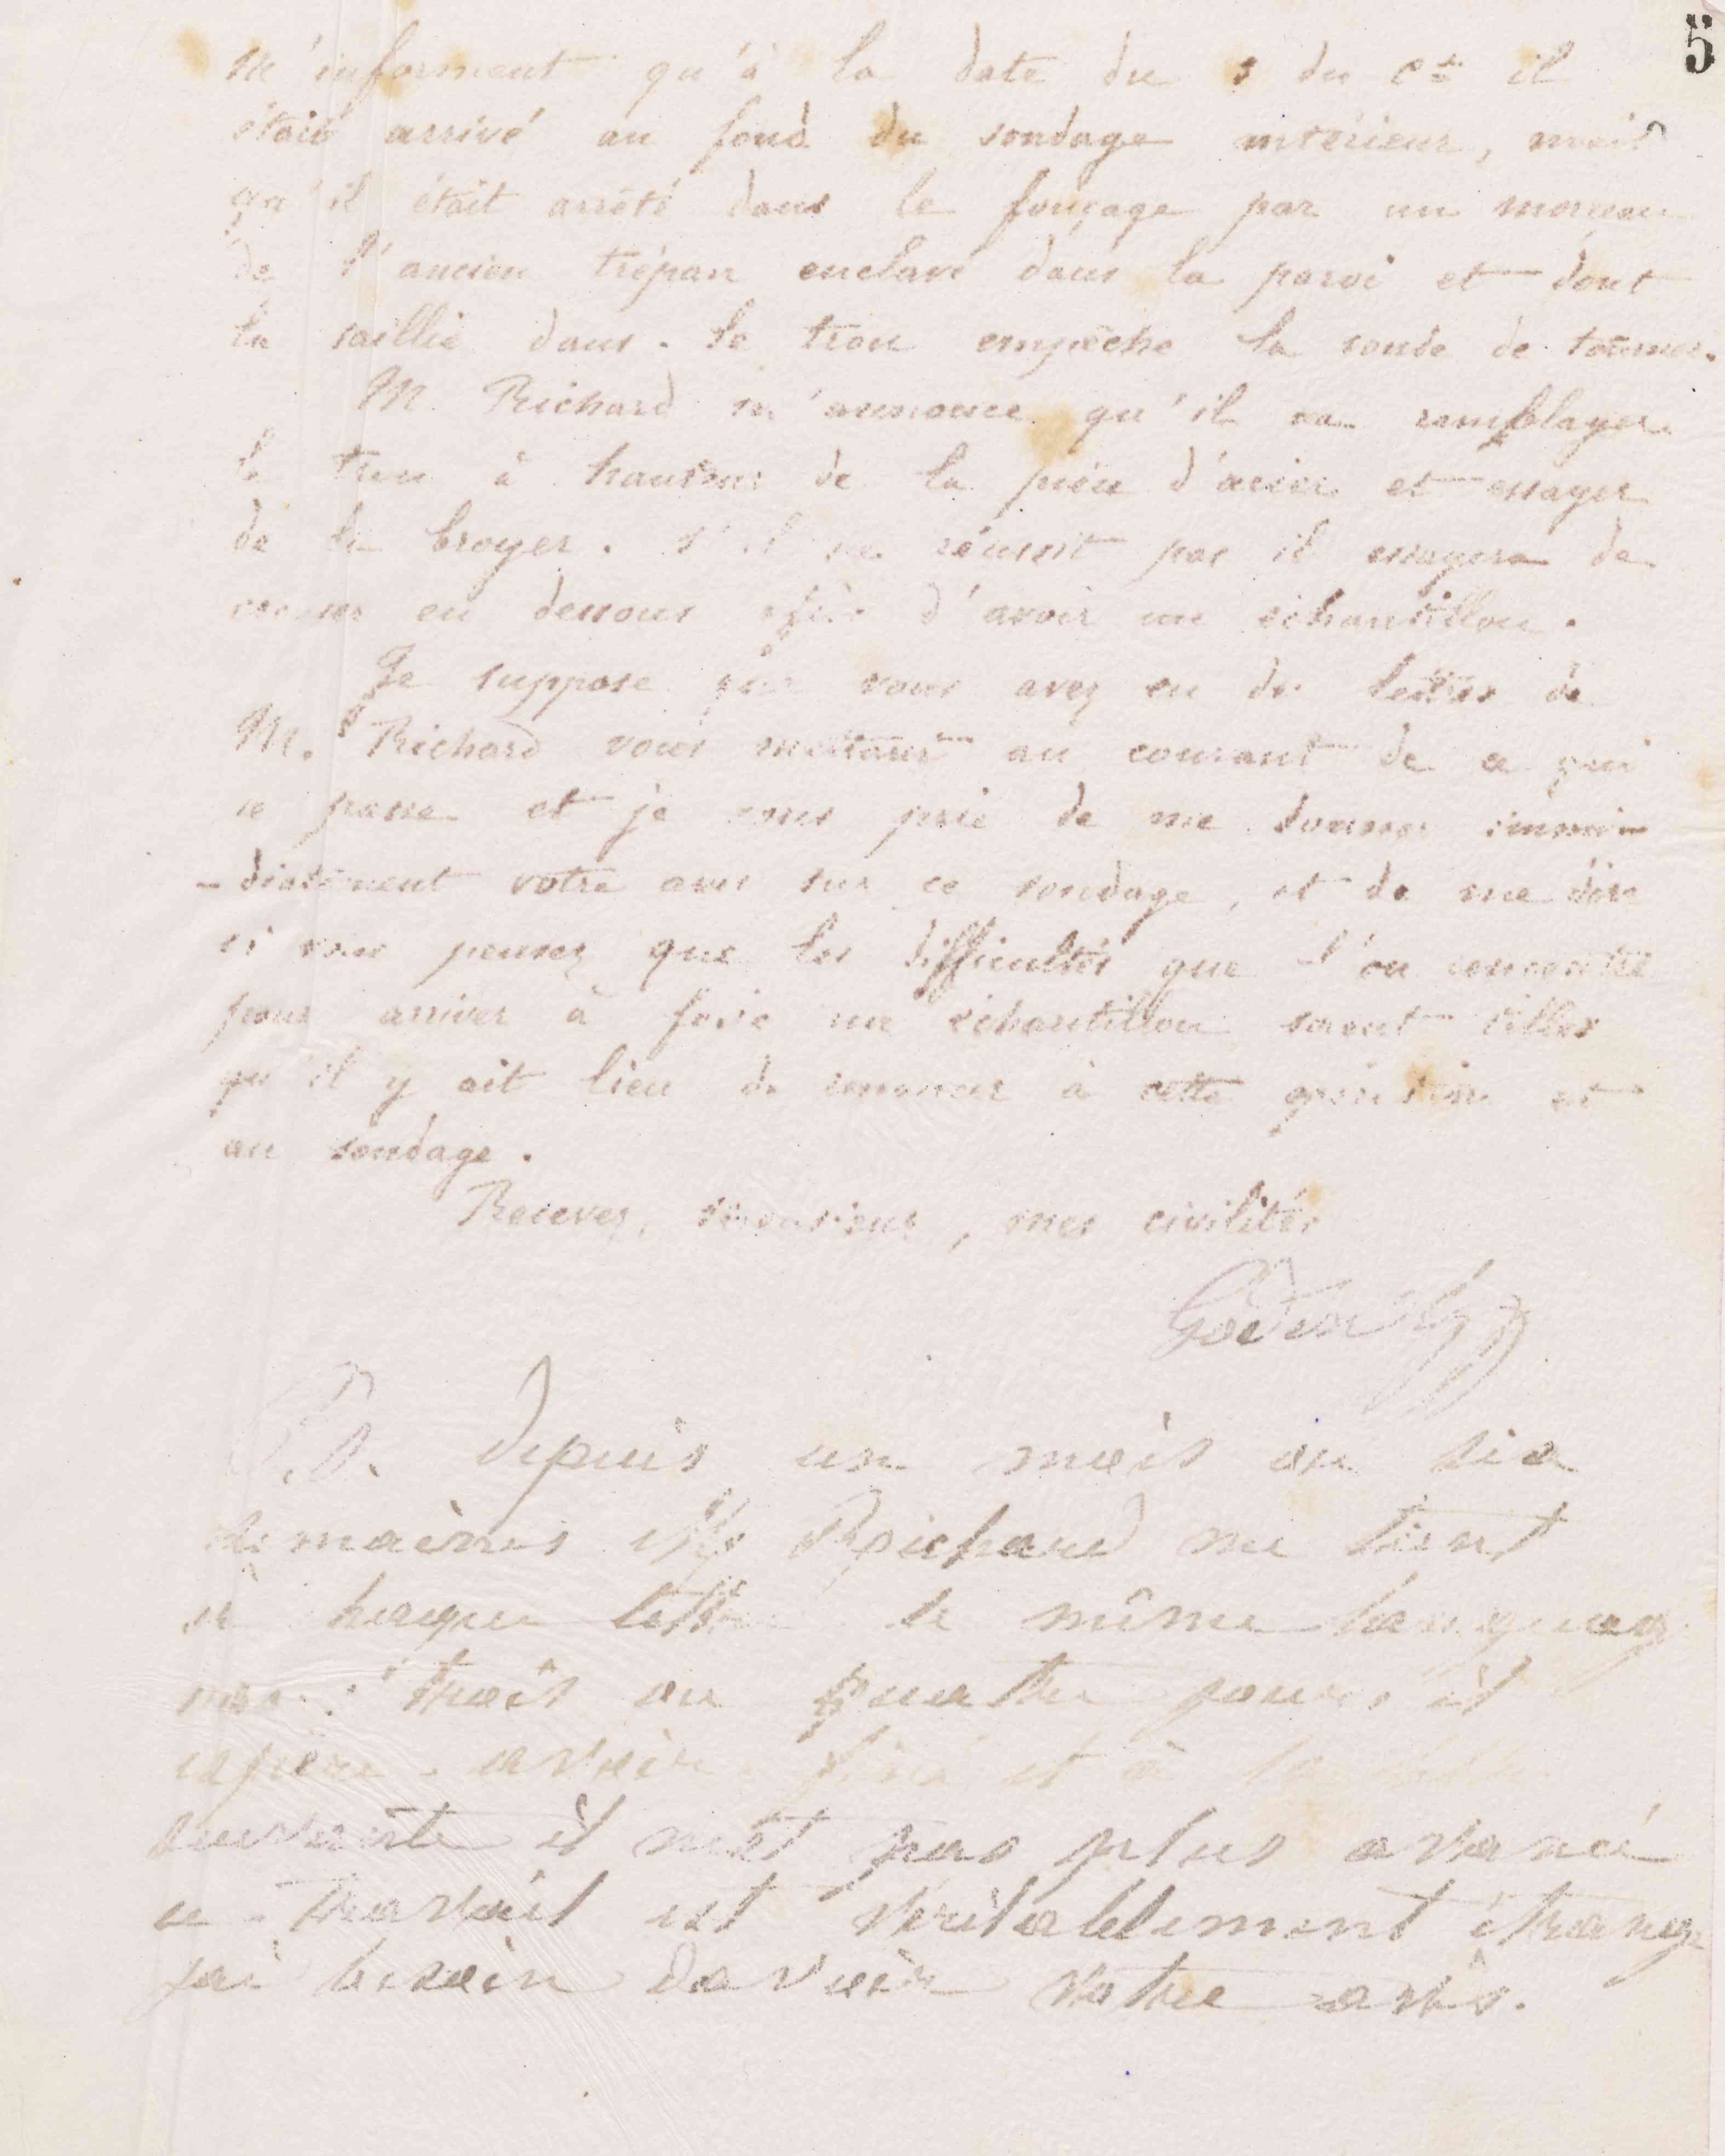 5
m'informent qu'à la date du 5 du Ct il
était arrivé au fond du sondage intérieur, mais
qu'il était arrêté dans le fonçage par un morceau
de l'ancien trépan enclavé dans la paroi et dont
la saillie dans le trou empêche la sonde de tourner.
M. Richard m'annonce qu'il va remblayer
le trou à hauteur de la pièce d'acier et essayer
de la broyer. S'il ne réussit pas il essayera de
creuser en dessous afin d'avoir un échantillon.
Je suppose que vous avez eu des lettres de
M. Richard vous mettant au courant de ce qui
se passe et je vous prie de me donner immé-
-diatement votre avis sur ce sondage, et de me dire
si vous pensez que les difficultés que l'on rencontre
pour arriver à faire un échantillon soient telles
qu'il y ait lieu de renoncer à cette opération et
au sondage.
Recevez, monsieur, mes civilités
Godin
P.S. depuis un mois ou six
semaines Mr Richard me tient
à chaque lettre le même langage
trois ou quatre jours il
espère avoir fini et à la
suivante il n'est pas plus avancé
ce travail est véritablement étrange
jai besoin davoir votre avis.